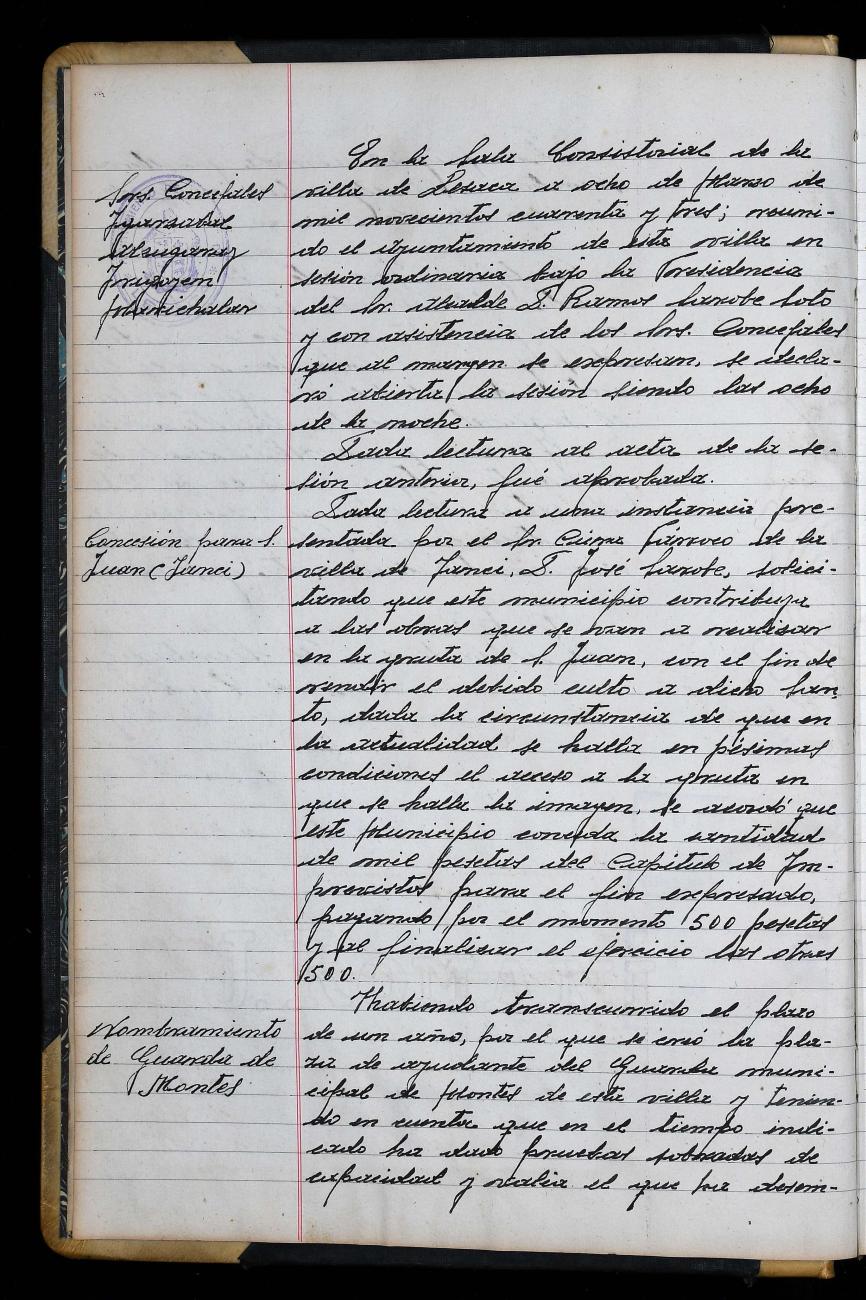 En la Sala Consistorial de la
villa de Lesaca a ocho de Marzo de
mil novecientos cuarenta y tres; reuni-
do el Ayuntamiento de esta villa en
sesión ordinaria bajo la Presidencia
del Sr. Alcalde D. Ramos Sarobe Soto
y con asistencia de los Srs. Concejales
que al margen se expresan, se decla-
ró abierta la sesión siendo las ocho
de la noche.
Srs. Concejales
Igarzabal
Irigoyen
Marichalar
Dada lectura al acta de la se-
sión anterior, fué aprobada.
Concesión para S.
Juan (Yanci)
Dada lectura a una instancia pre-
sentada por el Sr. Cura Párroco de la
villa de Yanci, D. José Sarobe, solici-
tando que este municipio contribuya
a las obras que se van a realizar
en la gruta de S. Juan, con el fin de
rendir el debido culto a dicho San-
to, dada la circunstancia de que en
la actualidad se halla en pésimas
condiciones el acceso a la gruta en
que se halla la imagen, se acordó que
este Municipio conceda la cantidad
de mil pesetas del Capítulo de Im-
previstos para el fin expresado,
pagando por el momento 500 pesetas
y al finalizar el ejercicio las otras
500.
Nombramiento
de Guarda de
Montes
Habiendo transcurrido el plazo
de un año, por el que se creó la pla-
za de ayudante del Guarda muni-
cipal de Montes de esta villa y tenien-
do en cuenta que en el tiempo indi-
cado ha dado pruebas sobradas de
capacidad y valía el que ha desem-